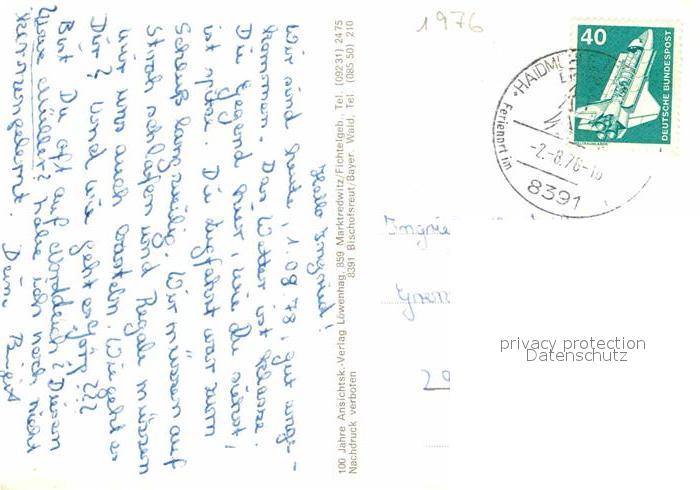 Hallo Ingrid!
Wir sind heute, 1.08.78, gut ange-
kommen. Das Wetter ist klasse.
Die Gegend hier, wie Du siehst,
ist spitze. Die Fahrt war zum
Scheiß langweilig. Wir müssen auf
Stroh schlafen und Regale müssen
wir uns auch basteln. Wie geht es
Dir? Und wie geht es
Bist Du oft auf Norddeich? Diesen
Müller? habe ich noch nicht
kennengelernt.
Deine Birgit
100 Jahre Ansichtsk.-Verlag Löwenhag, 859 Marktredwitz/Fichtelgeb., Tel. (09231) 2475
8391 Bischofsreut/Bayer. Wald, Tel. (08550) 210
Nachdruck verboten
1976
40
DEUTSCHE BUNDESPOST
HAIDM
Ferienort im
-2.-8.78-1
8391
Ingri
privacy protection
Datenschutz